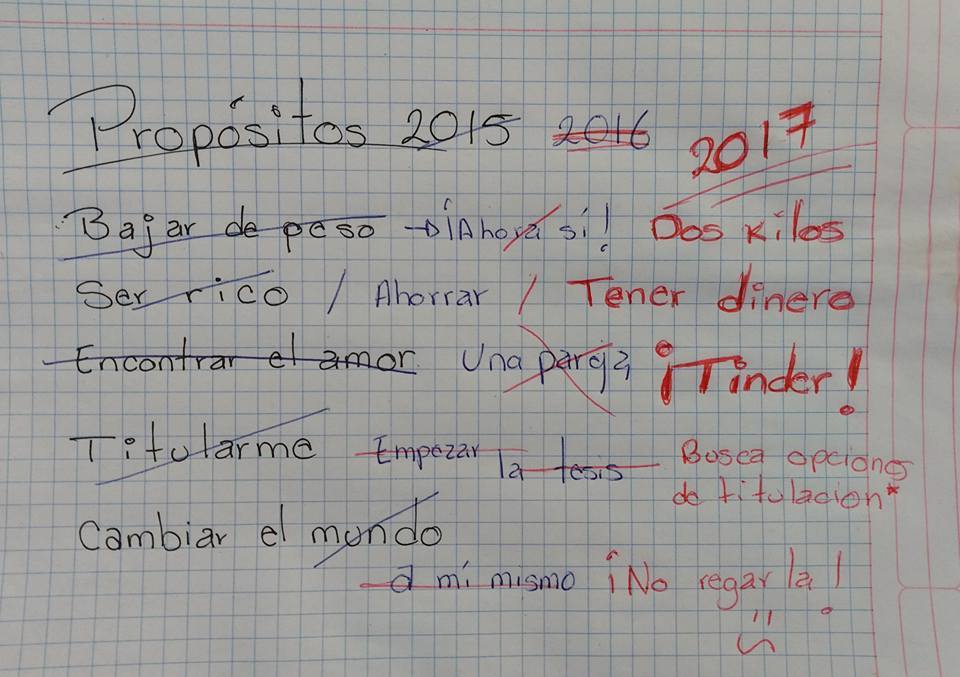 Propósitos 2015 2016 2017
Bajar de peso → ¡Ahora sí! Dos kilos
Ser rico / Ahorrar / Tener dinero
Encontrar el amor Una pareja ¡Tinder!
Titularme Empezar la tesis Busca opciones
de titulacion*
Cambiar el mundo
a mí mismo ¡No regarla!